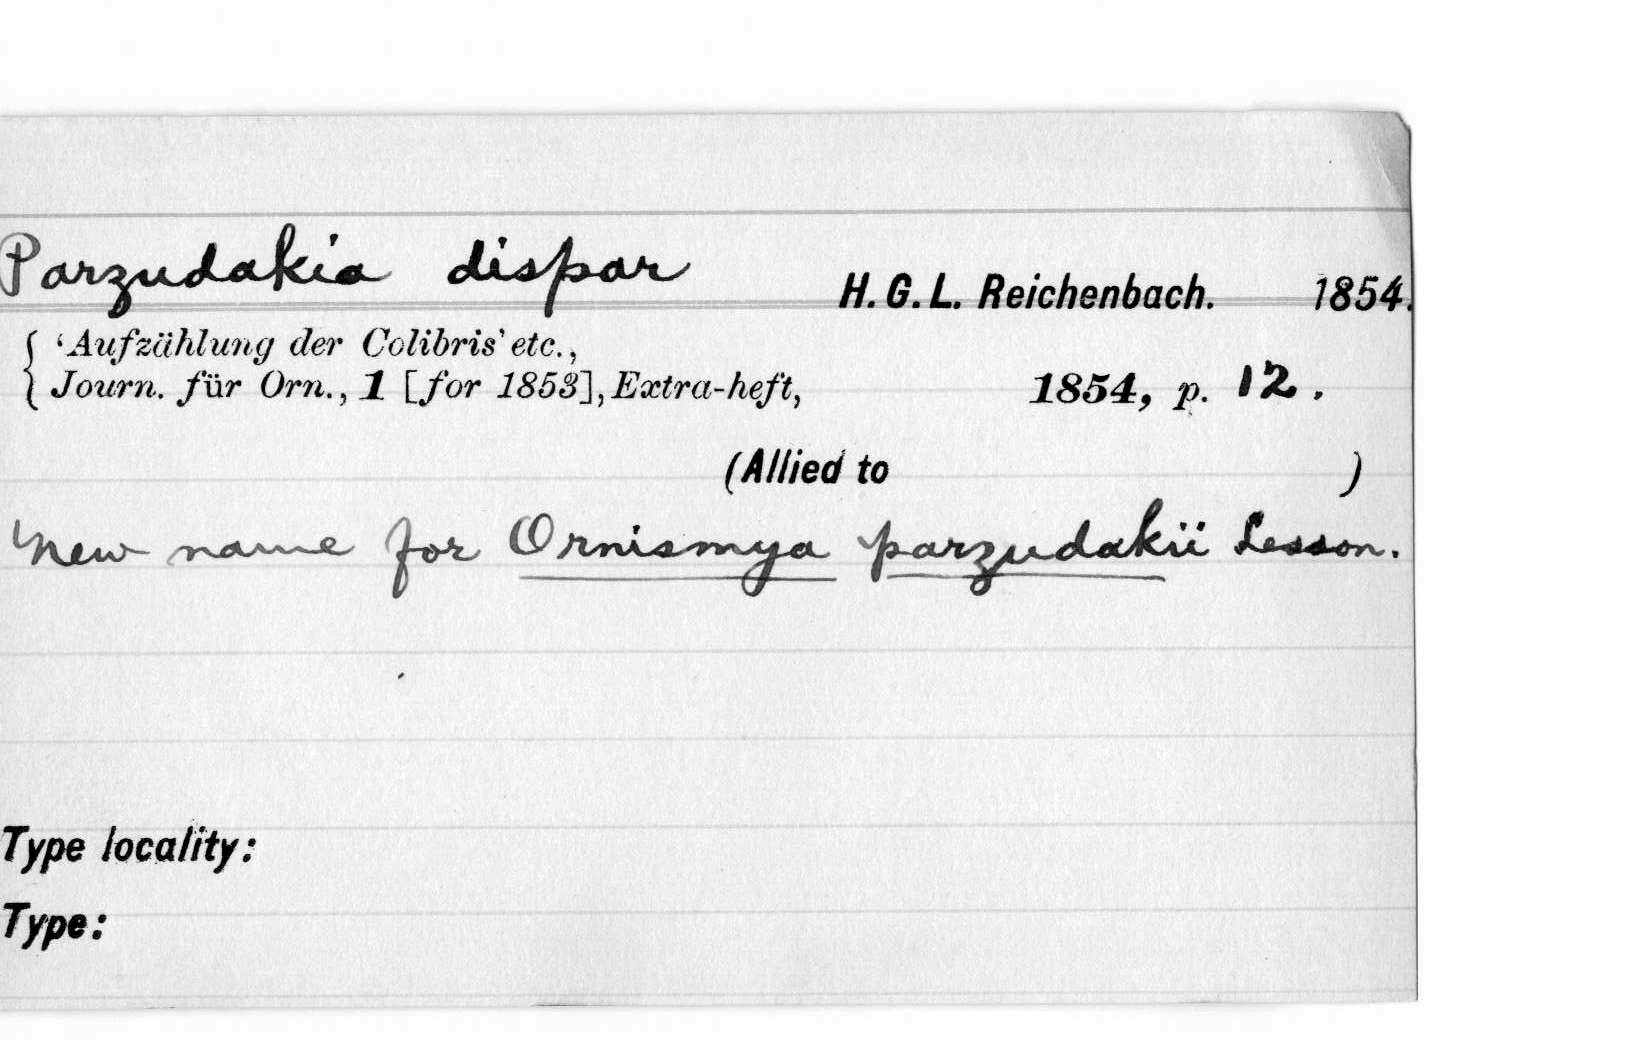 Parzudakia dispar H. G. L. Reichenbach. 1854.
‘Aufzählung der Colibris’ etc.,
Journ. für Orn., 1 [for 1853], Extra-heft, 1854, p. 12.
(Allied to )
New name for Ornismya parzudakii Lesson.
Type locality:
Type: